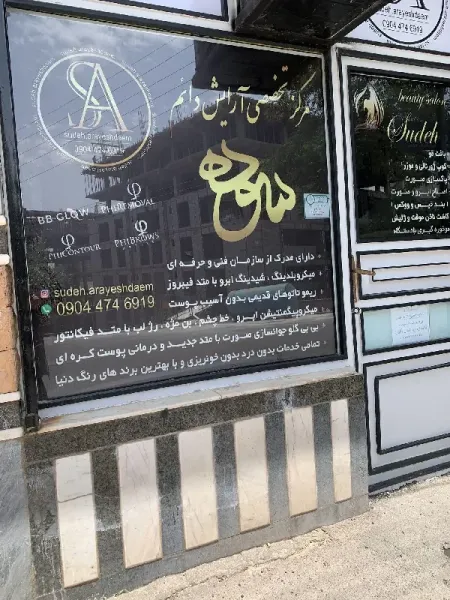 SA
sudeh.arayeshdaem
0904 474 6919
مرکز تخصصی آرایش دائم
سوده
BB GLOW
PHIREMOVAL
PHICONTOUR
PHIBROWS
sudeh.arayeshdaem
0904 474 6919
دارای مدرک از سازمان فنی و حرفه ای
میکروبلیدینگ ، شیدینگ ابرو با متد فیبروز
ریمو تاتوهای قدیمی بدون آسیب پوست
میکروپیگمنتیشن ابرو ، خط چشم ، بن مژه ، رژ لب با متد فیکانتور
بی بی گلو جوانسازی صورت با متد جدید و درمانی پوست کره ای
تمامی خدمات بدون درد بدون خونریزی و با بهترین برند های رنگ دنیا
sudeh.arayeshdaem
0904 474 6919
beauty salon
Sudeh
بافت مو
پاکسازی صورت
اصلاح ابرو و صورت
کاشت ناخن موقت و ژلیش